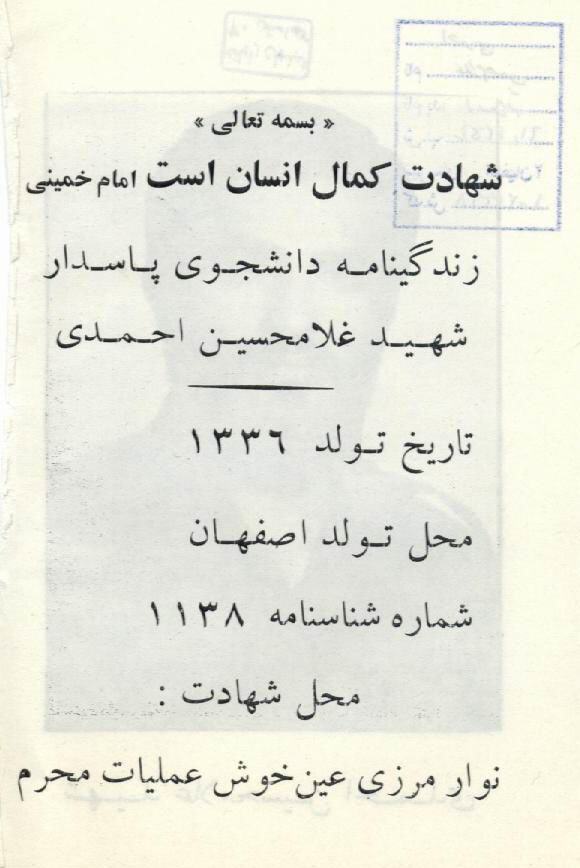 « بسمه تعالی »
شهادت کمال انسان است امام خمینی
زندگینامه دانشجوی پاسدار
شهید غلامحسین احمدی
تاریخ تولد ۱۳۳۶
محل تولد اصفهان
شماره شناسنامه ۱۱۳۸
محل شهادت :
نوار مرزی عین‌خوش عملیات محرم